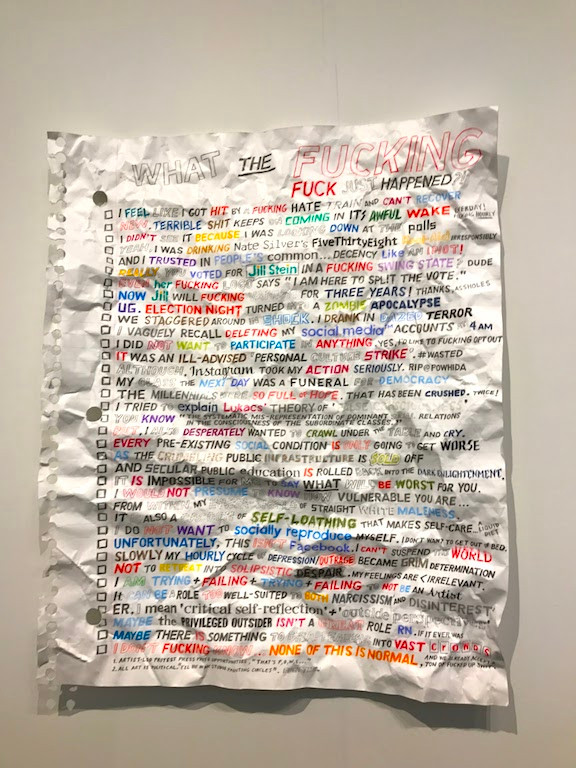 WHAT THE FUCKING
FUCK JUST HAPPENED?!
I FEEL LIKE I GOT HIT BY A FUCKING HATE TRAIN AND CAN'T RECOVER
TERRIBLE SHIT KEEPS ON COMING IN ITS AWFUL WAKE
I DIDN'T SEE IT BECAUSE I WAS LOOKING DOWN AT THE polls
YEAH, I WAS DRINKING Nate Silver's FiveThirtyEight IRRESPONSIBLY
AND I TRUSTED IN PEOPLE'S common... DECENCY LIKE AN IDIOT!
REALLY YOU VOTED FOR Jill Stein IN A FUCKING SWING STATE? DUDE
EVEN her FUCKING LOGO SAYS "I AM HERE TO SPL!T THE VOTE."
NOW Jill WILL FUCKING FOR THREE YEARS! THANKS, ASSHOLES
UG. ELECTION NIGHT TURNED INTO A ZOMBIE APOCALYPSE
WE STAGGERED AROUND IN SHOCK. I DRANK IN DAZED TERROR
I VAGUELY RECALL DELETING MY social media ACCOUNTS 4 AM
I DID NOT WANT TO PARTICIPATE IN ANYTHING. YES, I'D LIKE TO FUCKING OPT OUT
IT WAS AN ILL-ADVISED "PERSONAL CULTURE STRIKE". #WASTED
ALTHOUGH, Instagram TOOK MY ACTION SERIOUSLY. RIP@POWHIDA
MY THE NEXT DAY WAS A FUNERAL FOR DEMOCRACY
THE MILLENNIALS WERE SO FULL OF HOPE. THAT HAS BEEN CRUSHED. TWICE!
I TRIED TO explain Lukacs' THEORY OF
YOU KNOW "THE SYSTEMATIC MIS-REPRESENTATION OF DOMINANT SOCIAL RELATIONS IN THE CONSCIOUSNESS OF THE SUBORDINATE CLASSES."
I DESPERATELY WANTED TO CRAWL UNDER THE TABLE AND CRY.
EVERY PRE-EXISTING SOCIAL CONDITION IS ONLY GOING TO GET WORSE
AS THE CRUMBLING PUBLIC INFRASTRUCTURE IS SOLD OFF
AND SECULAR PUBLIC education IS ROLLED BACK INTO THE DARK ENLIGHTENMENT.
IT IS IMPOSSIBLE FOR ME TO SAY WHAT WILL BE WORST FOR YOU.
I WOULD NOT PRESUME TO KNOW HOW VULNERABLE YOU ARE...
FROM WITHIN MY OF STRAIGHT WHITE MALENESS.
IT ALSO A OF SELF-LOATHING THAT MAKES SELF-CARE... LIQUID DIET
I DO NOT WANT TO socially reproduce MYSELF. I DON'T WANT TO GET OUT OF BED.
UNFORTUNATELY, THIS ISN'T Facebook. I CAN'T SUSPEND THE WORLD
SLOWLY MY HOURLY CYCLE OF DEPRESSION/OUTRAGE BECAME GRIM DETERMINATION
NOT TO RETREAT INTO SOLIPSISTIC DESPAIR. MY FEELINGS ARE < IRRELEVANT.
I AM TRYING + FAILING + TRYING + FAILING TO NOT BE AN Artist
IT CAN BE A ROLE TOO WELL-SUITED TO BOTH NARCISSISM AND DISINTEREST
ER. I mean 'critical self-reflection' + 'outside perspective'
MAYBE the PRIVILEGED OUTSIDER ISN'T A GREAT ROLE RN. IF IT EVER WAS
MAYBE THERE IS SOMETHING TO INTO VAST CROWDS
I DON'T FUCKING KNOW... NONE OF THIS IS NORMAL,
1. ARTIST-LED PROTEST
2. ALL ART IS POLITICAL.